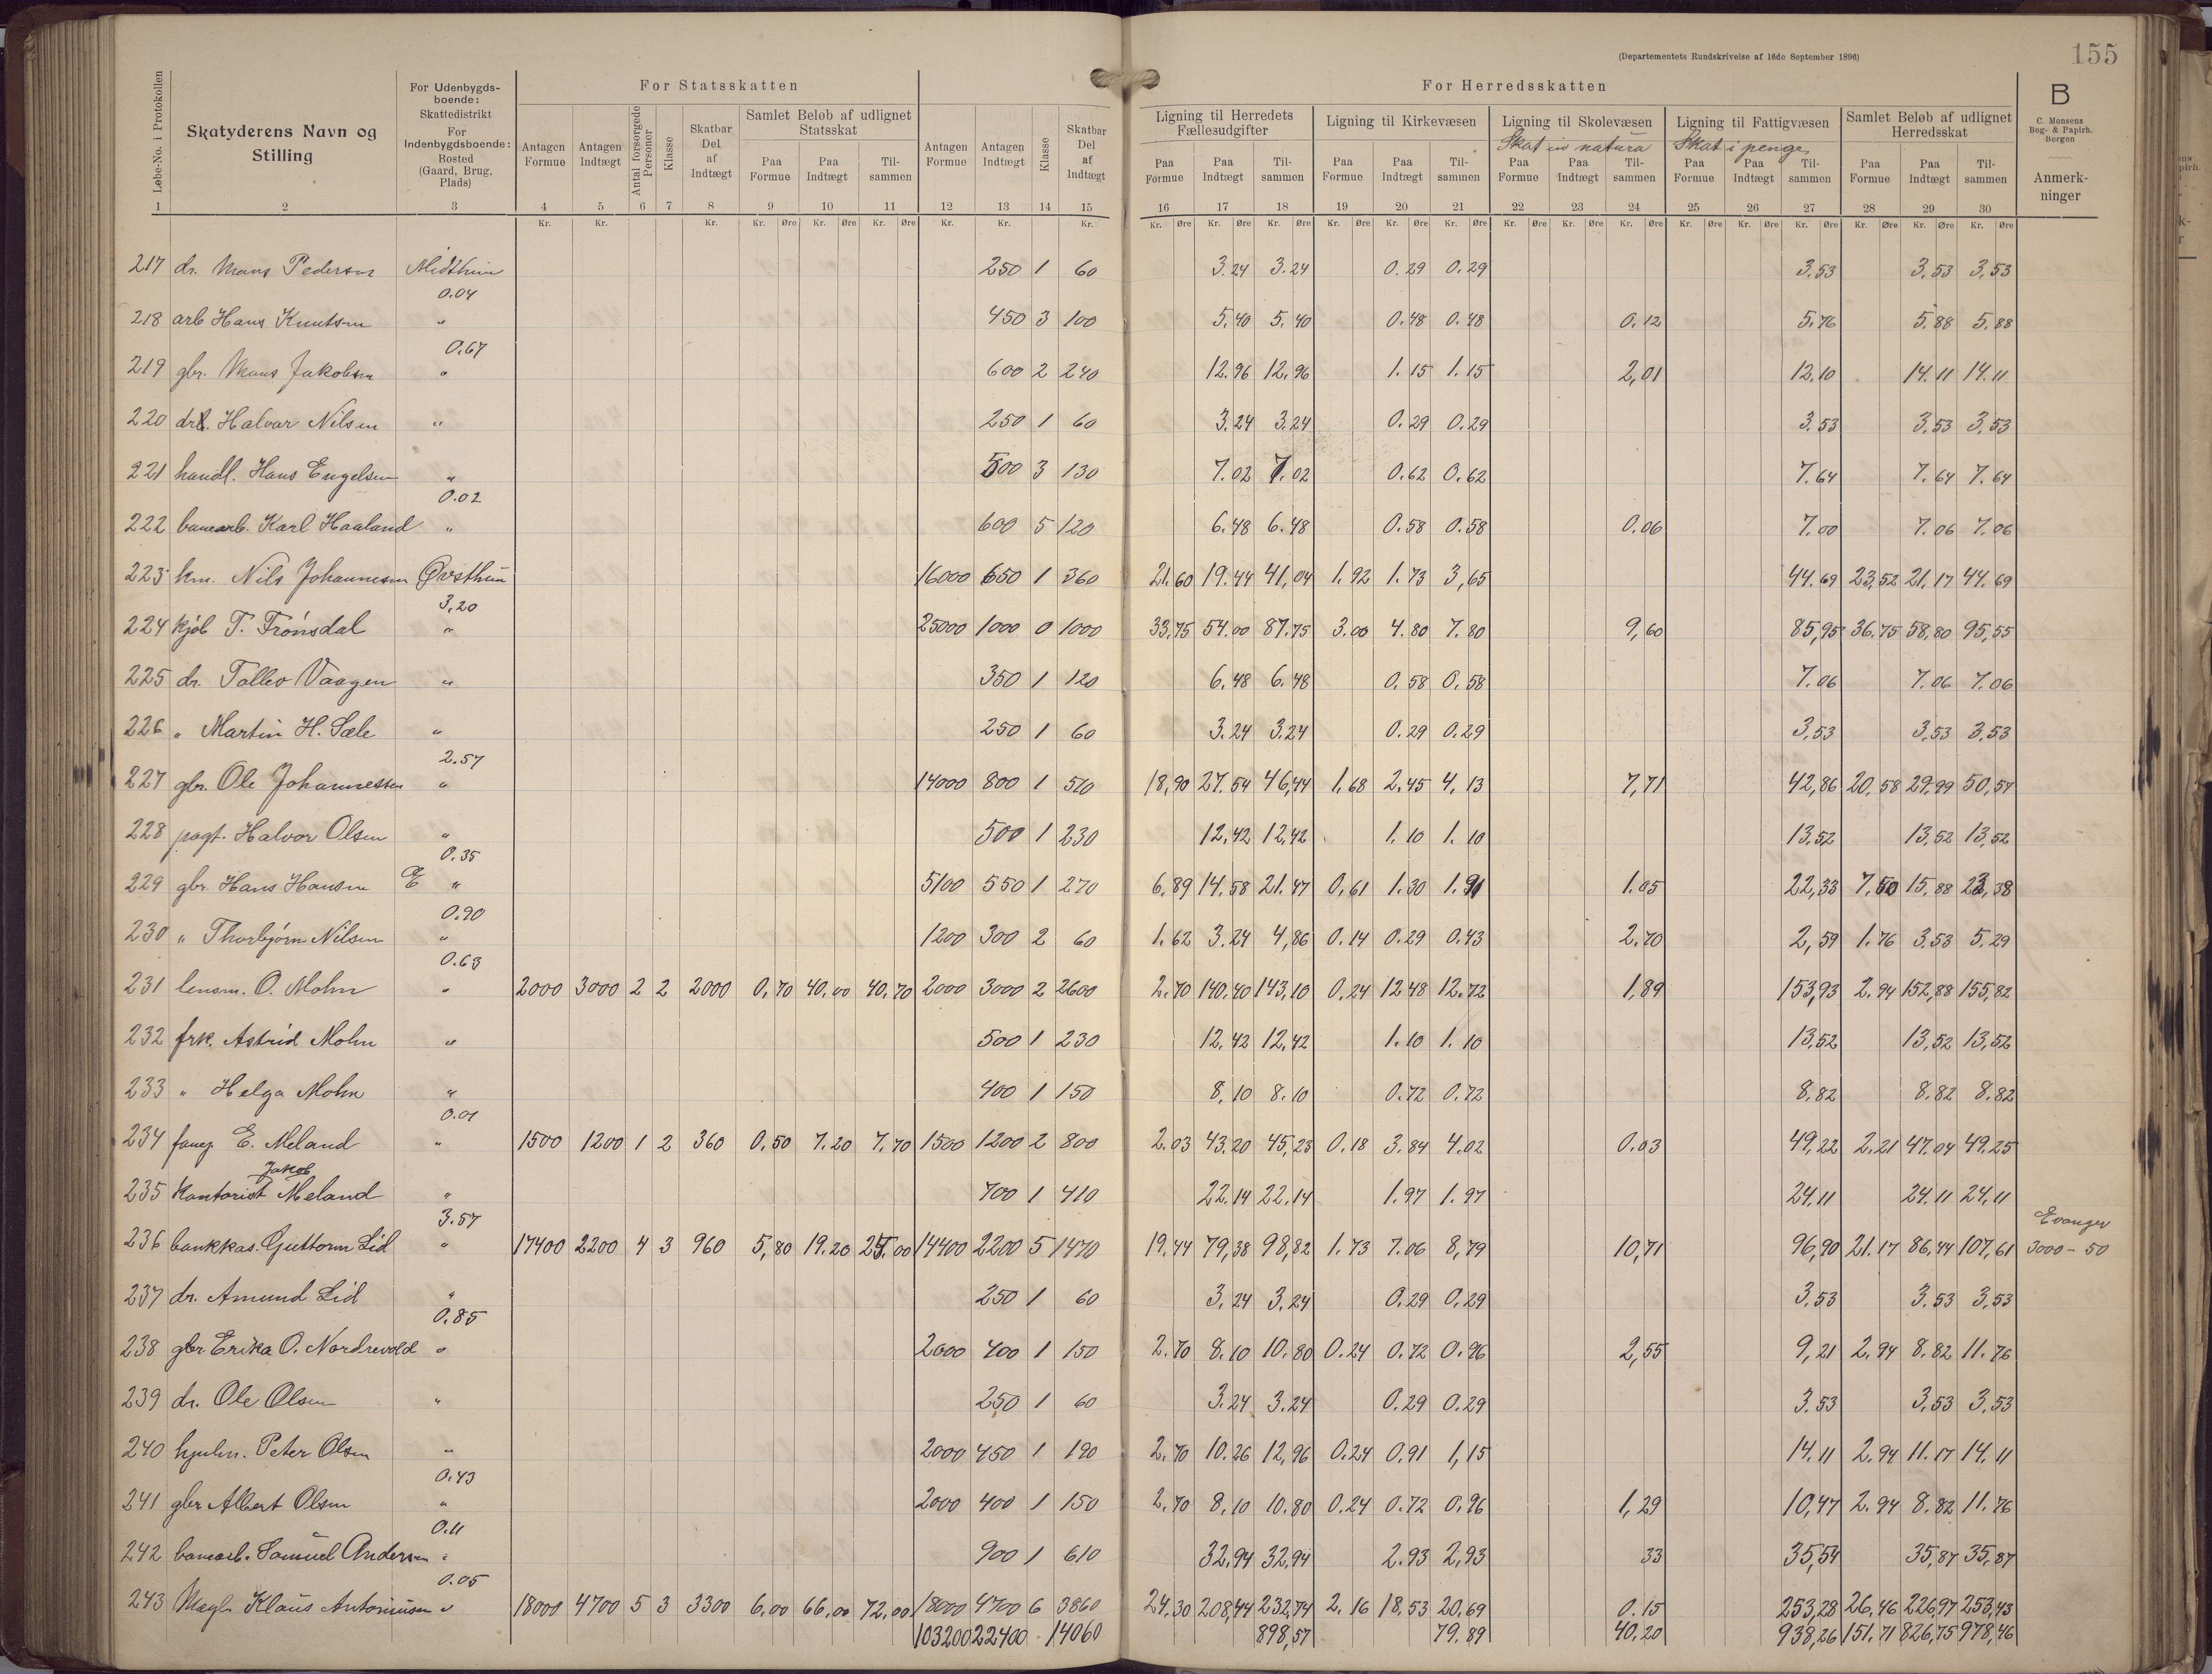 (Departementets Rundskrivelse af 16de September 1896)
155
For Statsskatten
For Herredsskatten
B
C. Monsens Bog- & Papirh. Bergen
Løbe-No. i Protokollen
Skatyderens Navn og Stilling
For Udenbygdsboende: Skattedistrikt For Indenbygdsboende: Bosted (Gaard, Brug, Plads)
Antagen Formue
Antagen Indtægt
Antal forsørgede Personer
Klasse
Skatbar Del af Indtægt
Samlet Beløb af udlignet Statsskat
Paa Formue Paa Indtægt Tilsammen
Antagen Formue
Antagen Indtægt
Klasse
Skatbar Del af Indtægt
Ligning til Herredets Fællesudgifter
Paa Formue Paa Indtægt Tilsammen
Ligning til Kirkevæsen
Paa Formue Paa Indtægt Tilsammen
Ligning til Skolevæsen
Skat in natura
Paa Formue Paa Indtægt Tilsammen
Ligning til Fattigvæsen
Skat i penge
Paa Formue Paa Indtægt Tilsammen
Samlet Beløb af udlignet Herredsskat
Paa Formue Paa Indtægt Tilsammen
Anmerkninger
1 2 3 4 5 6 7 8 9 10 11 12 13 14 15 16 17 18 19 20 21 22 23 24 25 26 27 28 29 30
217 dr. Mons Pedersen Midthun 250 1 60 3.24 3.24 0.29 0.29 3.53 3.53 3.53
0.04
218 arb Hans Knutsen " 450 3 100 5.40 5.40 0.48 0.48 0.12 5.76 5.88 5.88
0.67
219 gbr. Mons Jakobsen " 600 2 240 12.96 12.96 1.15 1.15 2,01 12.10 14.11 14.11
220 dr. Halvar Nilsen " 250 1 60 3.24 3.24 0.29 0.29 3.53 3.53 3.53
221 handl. Hans Engelsen " 500 3 130 7.02 7.02 0.62 0.62 7.64 7.64 7.64
0.02
222 banearb. Karl Haaland " 600 5 120 6.48 6.48 0.58 0.58 0.06 7.00 7.06 7.06
223 km. Nils Johannesen Øvsthun 16000 650 1 360 21.60 19.44 41,04 1.92 1.73 3,65 44.69 23,52 21.17 44.69
3,20
224 kjøb T. Trønsdal " 25000 1000 0 1000 33,75 54.00 87.75 3.00 4.80 7.80 9,60 85,95 36.75 58,80 95,55
225 dr. Tollev Vaagen " 350 1 120 6.48 6.48 0.58 0.58 7.06 7.06 7.06
226 " Martin H. Sæle " 250 1 60 3.24 3.24 0.29 0.29 3,53 3,53 3.53
2.57
227 gbr. Ole Johannessen " 14000 800 1 510 18,90 27.54 46,44 1,68 2.45 4,13 7,71 42,86 20.58 29.99 50,57
228 pagt. Halvor Olsen " 500 1 230 12,42 12,42 1.10 1.10 13,52 13,52 13,52
0.35
229 gbr. Hans Hansen " 5100 550 1 270 6,89 14,58 21.47 0,61 1.30 1.91 1.05 22,33 7,50 15,88 23,38
0.90
230 " Thorbjørn Nilsen " 1200 300 2 60 1.62 3.24 4,86 0.14 0.29 0.43 2.70 2,59 1.76 3.53 5.29
0.63
231 lensm. O. Mohn " 2000 3000 2 2 2000 0,70 40,00 40,70 2000 3000 2 2600 2.70 140.40 143,10 0,24 12.48 12.72 1,89 153,93 2.94 152,88 155,82
232 frk. Astrid Mohn " 500 1 230 12,42 12,42 1.10 1.10 13,52 13,52 13,52
233 " Helga Mohn " 400 1 150 8,10 8.10 0.72 0.72 8,82 8.82 8.82
0.01
234 E. Meland " 1500 1200 1 2 360 0.50 7.20 7.70 1500 1200 2 800 2.03 43.20 45,23 0.18 3.84 4.02 0.03 49,22 2.21 47.04 49.25
Jakob
235 Kontorist Meland " 700 1 410 22.14 22.14 1.97 1.97 24,11 24.11 24,11
3.57
Evanger
236 bankkas. Guttorm Lid " 17400 2200 4 3 960 5,80 19.20 25.00 14400 2200 5 1470 19,44 79,38 98,82 1.73 7.06 8,79 10,71 96,90 21.17 86,44 107,61 3000 - 50
237 dr. Amund Lid " 250 1 60 3,24 3.24 0.29 0,29 3.53 3.53 3,53
0.85
238 gbr Erika O. Nordrevold " 2000 400 1 150 2.70 8.10 10.80 0.24 0.72 0.96 2,55 9,21 2.94 8.82 11.76
239 dr. Ole Olsen " 250 1 60 3.24 3.24 0.29 0.29 3.53 3,53 3,53
240 hjulm. Peter Olsen " 2000 450 1 190 2.70 10.26 12,96 0.24 0.91 1,15 14,11 2.94 11.17 14,11
0.43
241 gbr Albert Olsen " 2000 400 1 150 2.70 8,10 10.80 0.24 0.72 0.96 1,29 10,47 2.94 8.82 11.76
0.11
242 banearb. Samuel Andersen " 900 1 610 32,94 32,94 2.93 2,93 33 35,54 35,87 35,87
0.05
243 Klaus Antoniusen " 18000 4700 5 3 3300 6,00 66,00 72,00 18000 4700 6 3860 24,30 208,44 232,74 2.16 18.53 20,69 0.15 253,28 26,46 226,97 253,43
103200 22400 14060 898,57 79.89 40,20 938,26 151.71 826,75 978,46